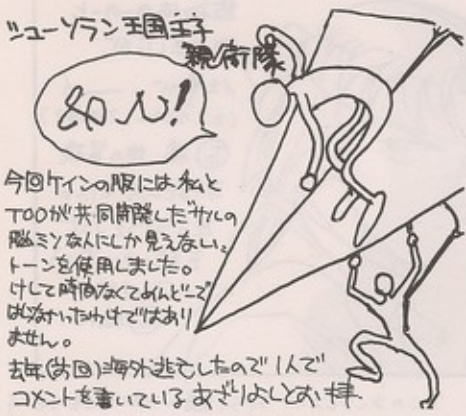 ジューソラン王国王子
親衛隊
今回ケインの服には私と
TOOが共同開発したサルの
脳ミソな人にしか見えない、
トーンを使用しました。
けして時間なくてめんどーで
はしなかったわけではあり
ません。
去年(前回)海外逃亡したので1人で
コメントを書いている あさりよしとお 拝